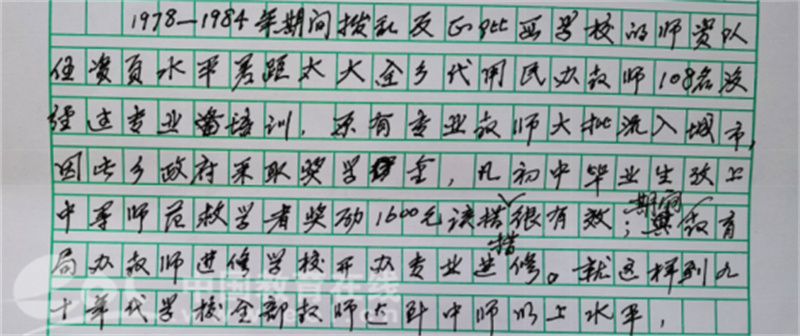 1978—1984年期间拨乱反正学校的师资队
伍资水平差距太大全乡代用民办教师108名没
经过专业培训，原有专业教师大批流入城市，
因此乡政府采取奖学金，凡初中毕业生攷上
期间
中等师范教学者奖励1600元该搭很有效；县教育
措
局办教师进修学校开办专业进修。就这样到九
十年代学校全部教师达到中师以上水平，
中国教育在线